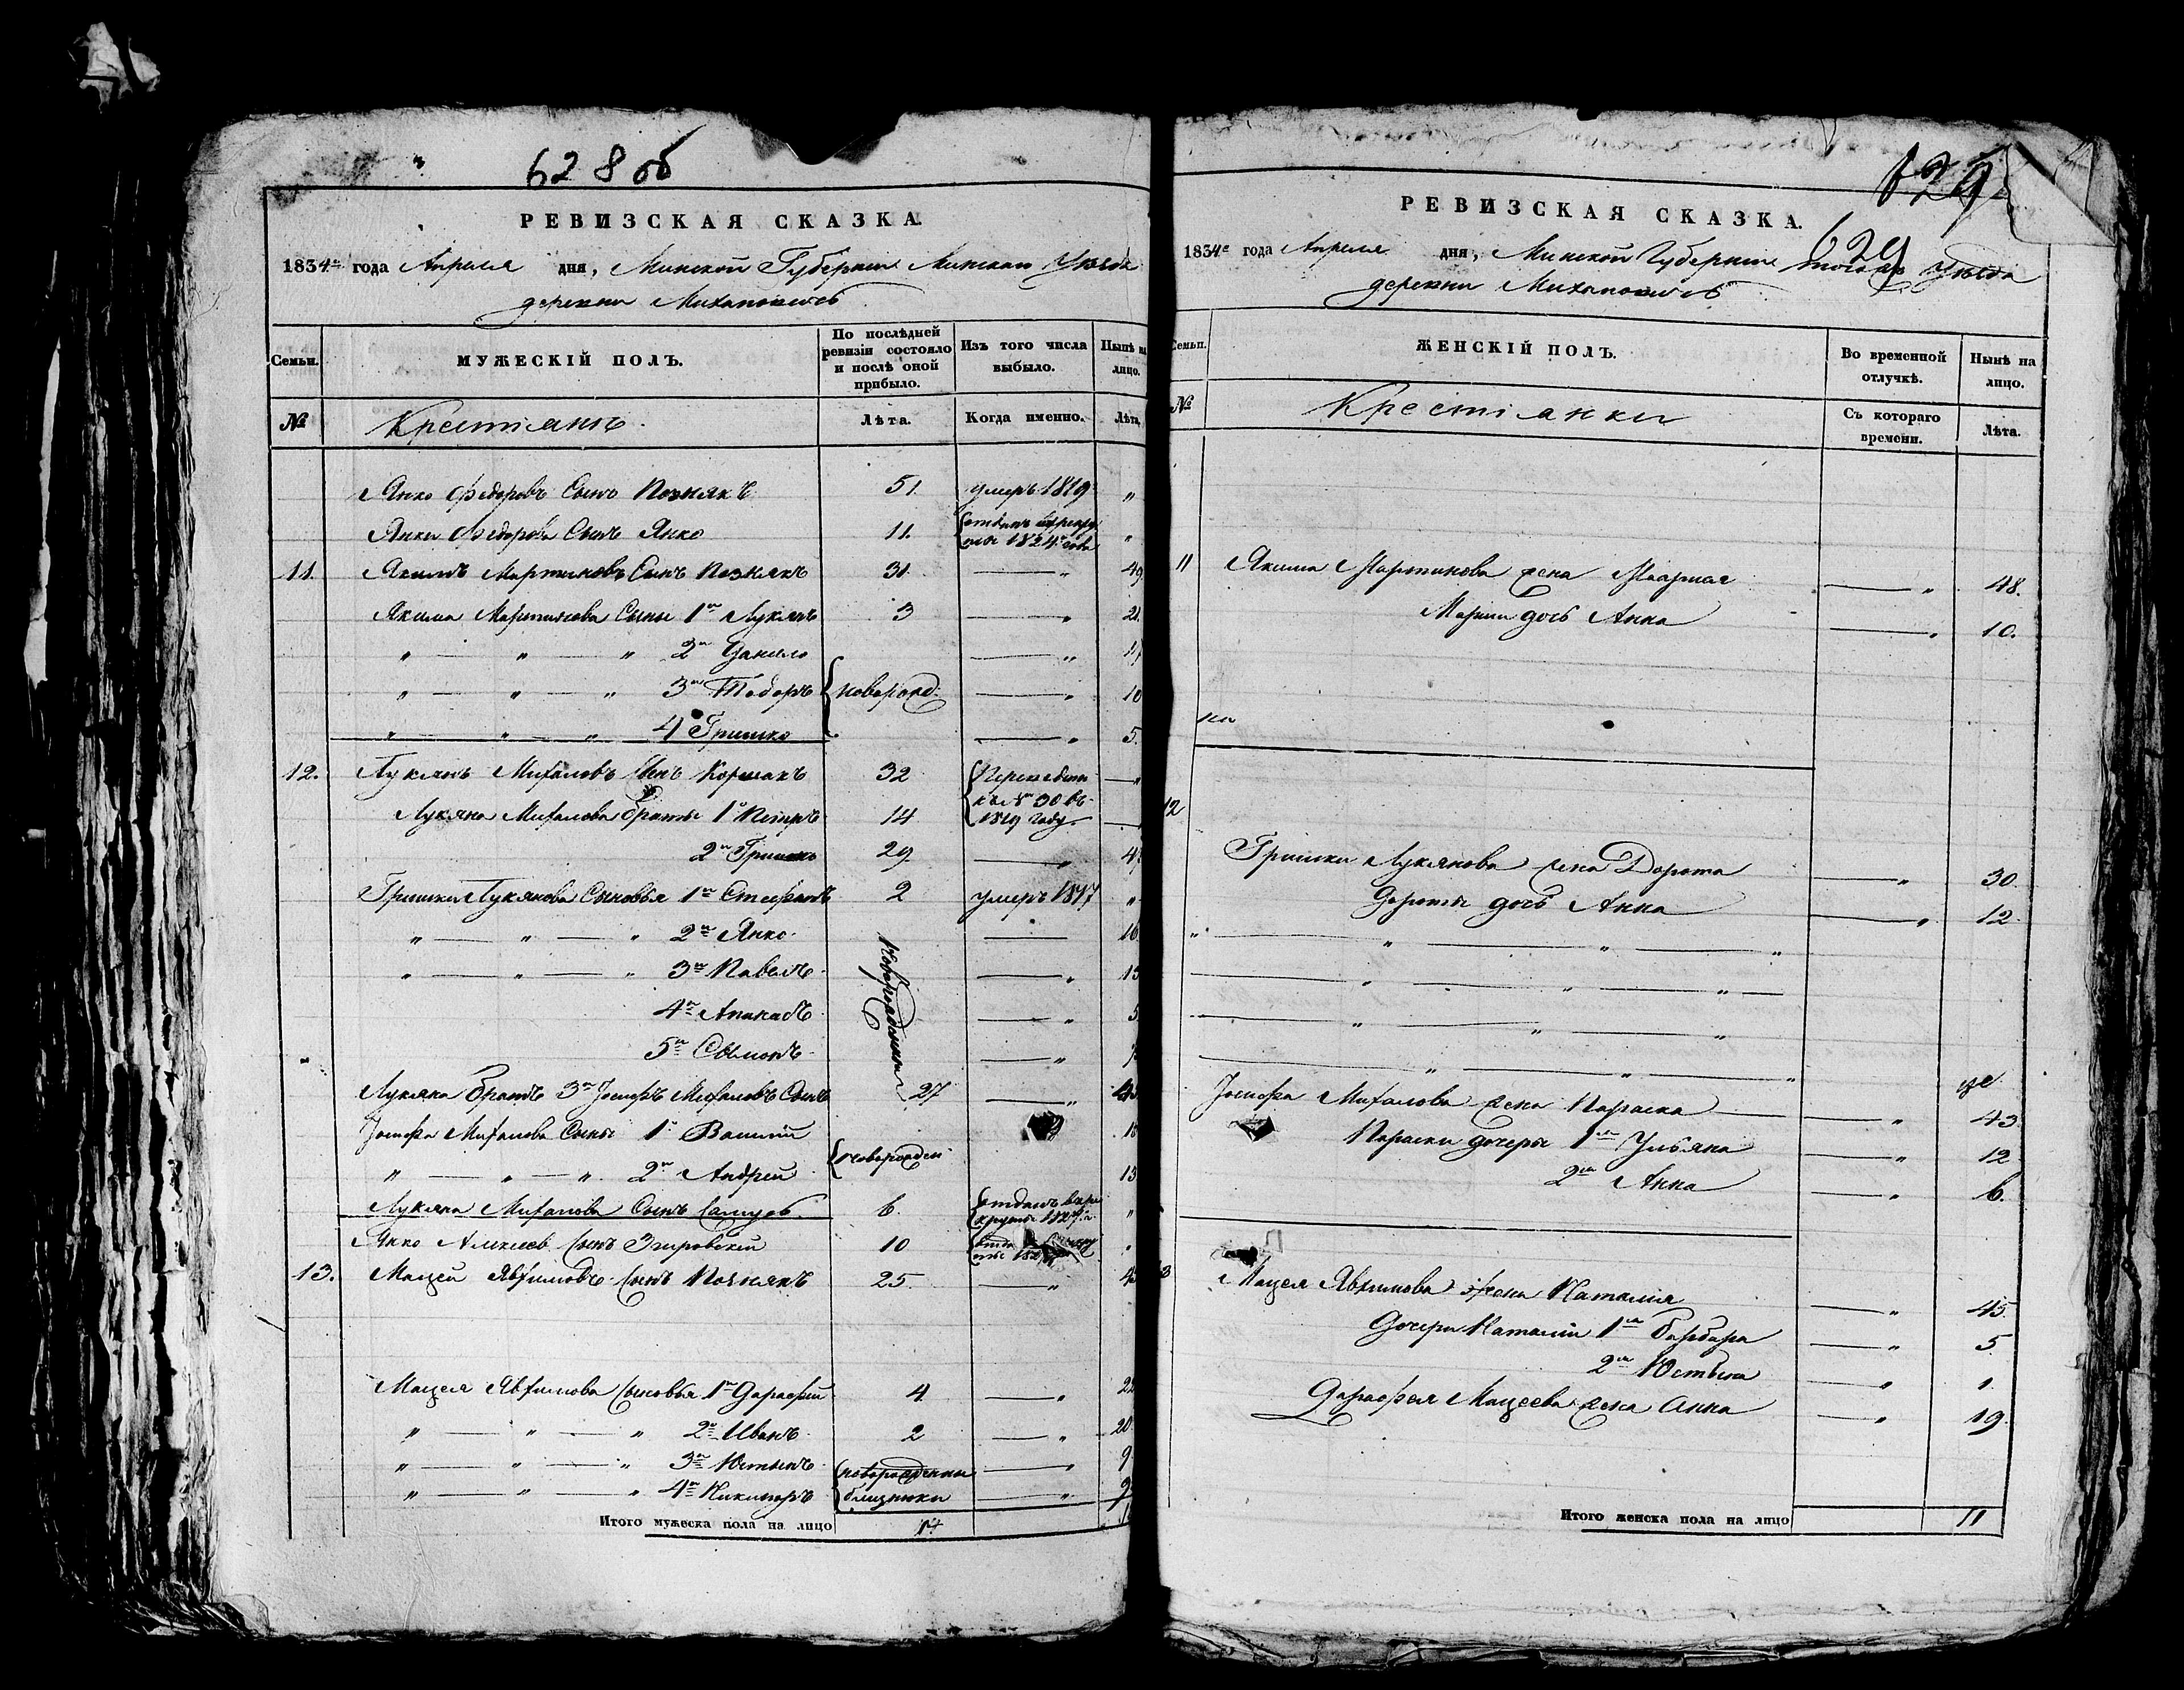 628 об
РЕВИЗСКАЯ СКАЗКА.
1834го года Апреля дня, Минской Губернии Минскаго Уѣзда
деревни Михановичъ
Семьи.
МУЖЕСКІЙ ПОЛЪ.
По послѣдней ревизіи состояло и послѣ оной прибыло.
Изъ того числа выбыло.
Нынѣ на лицо.
№ Крестьянъ. Лѣта. Когда именно. Лѣта.
Янко Федоровъ Сынъ Познякъ 51. умеръ 1819 "
Янки Федорова Сынъ Янко 11. отданъ 1824 года "
11. Якимъ Мартиновъ Сынъ Познякъ 31. — " 49
Якима Мартинова Сыны 1й Лукянъ 3 — " 21.
" — " — " 2й Данило — " 17
" — " — " 3й Тодоръ новорожд: — " 10
" — " — " 4 Гришко — " 5.
12. Лукянъ Михаловъ Сынъ Коршакъ 32 — "
Лукяна Михалова Браты 1й Петръ 14 1819 году —
2й Гришко 29 — "
Гришки Лукянова Сыновья 1й Стефанъ 2 умеръ 1817 "
" — " — " 2й Янко — 16
" — " — " 3й Павелъ — "
4й — " 5
5й Сымонъ — "
Новорожденные
Лукяна Братъ 3й Іосифъ Михаловъ Сынъ 27 — "
Іосифа Михалова Сыны 1й Василій
" — " — " 2й Андрей новорожден 15
Лукяна Михалова Сынъ 6. отданъ "
Янко Сынъ 10
13. Мацей Явхимовъ Сынъ Познякъ 25 — "
Мацея Явхимова Сыновья 1й Дарафей 4 — " 22
" — " — " 2й Иванъ 2 — " 20
" — " — " 3й Юстынъ новорожденные — " 9
" — " — " 4й Никипоръ близнюки — " 9
Итого мужеска пола на лицо
629
629
РЕВИЗСКАЯ СКАЗКА.
1834го года Апреля дня, Минской Губернии тогожъ Уѣзда
деревни Михановичъ
Семьи.
ЖЕНСКІЙ ПОЛЪ.
Во временной отлучкѣ.
Нынѣ на лицо.
№ Крестьянки Съ котораго времени. Лѣта.
11 Якима Мартинова жена — " 48.
Марии дочь Анна — " 10.
12
Гришки Лукянова жена Дорота — " 30
Дароты дочь Анна — " 12
Іосифа Михалова жена Параска — " 43
Параски дочеры 1я Ульяна — " 12
2я Анна — " 6.
Мацея Явхимова жена Наталія — " 45
Дочери Наталіи 1я Барбара — " 5
2я Юстына — " 1.
Дарафея Мацеева жена Анна — " 19
Итого женска пола на лицо 11